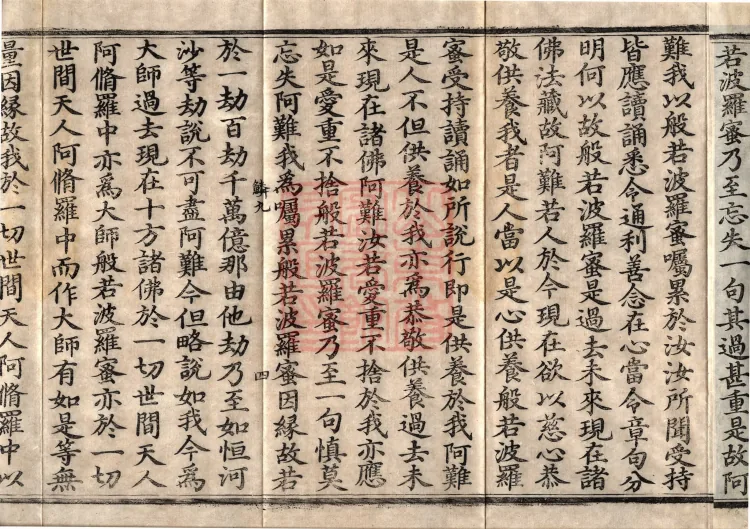 若波羅蜜乃至忘失一句其過甚重是故阿
難我以般若波羅蜜囑累於汝汝所聞受持
皆應讀誦悉令通利善念在心當令章句分
明何以故般若波羅蜜是過去未來現在諸
佛法藏故阿難若人於今現在欲以慈心恭
敬供養我者是人當以是心供養般若波羅
蜜受持讀誦如所說行即是供養於我阿難
是人不但供養於我亦為恭敬供養過去未
來現在諸佛阿難汝若愛重不捨於我亦應
如是愛重不捨般若波羅蜜乃至一句慎莫
忘失阿難我為囑累般若波羅蜜因緣故若
鱗九 四
於一劫百劫千萬億那由他劫乃至如恒河
沙等劫說不可盡阿難今但略說如我今為
大師過去現在十方諸佛於一切世間天人
阿脩羅中亦為大師般若波羅蜜亦於一切
世間天人阿脩羅中而作大師有如是等無
量因緣故我於一切世間天人阿脩羅中以